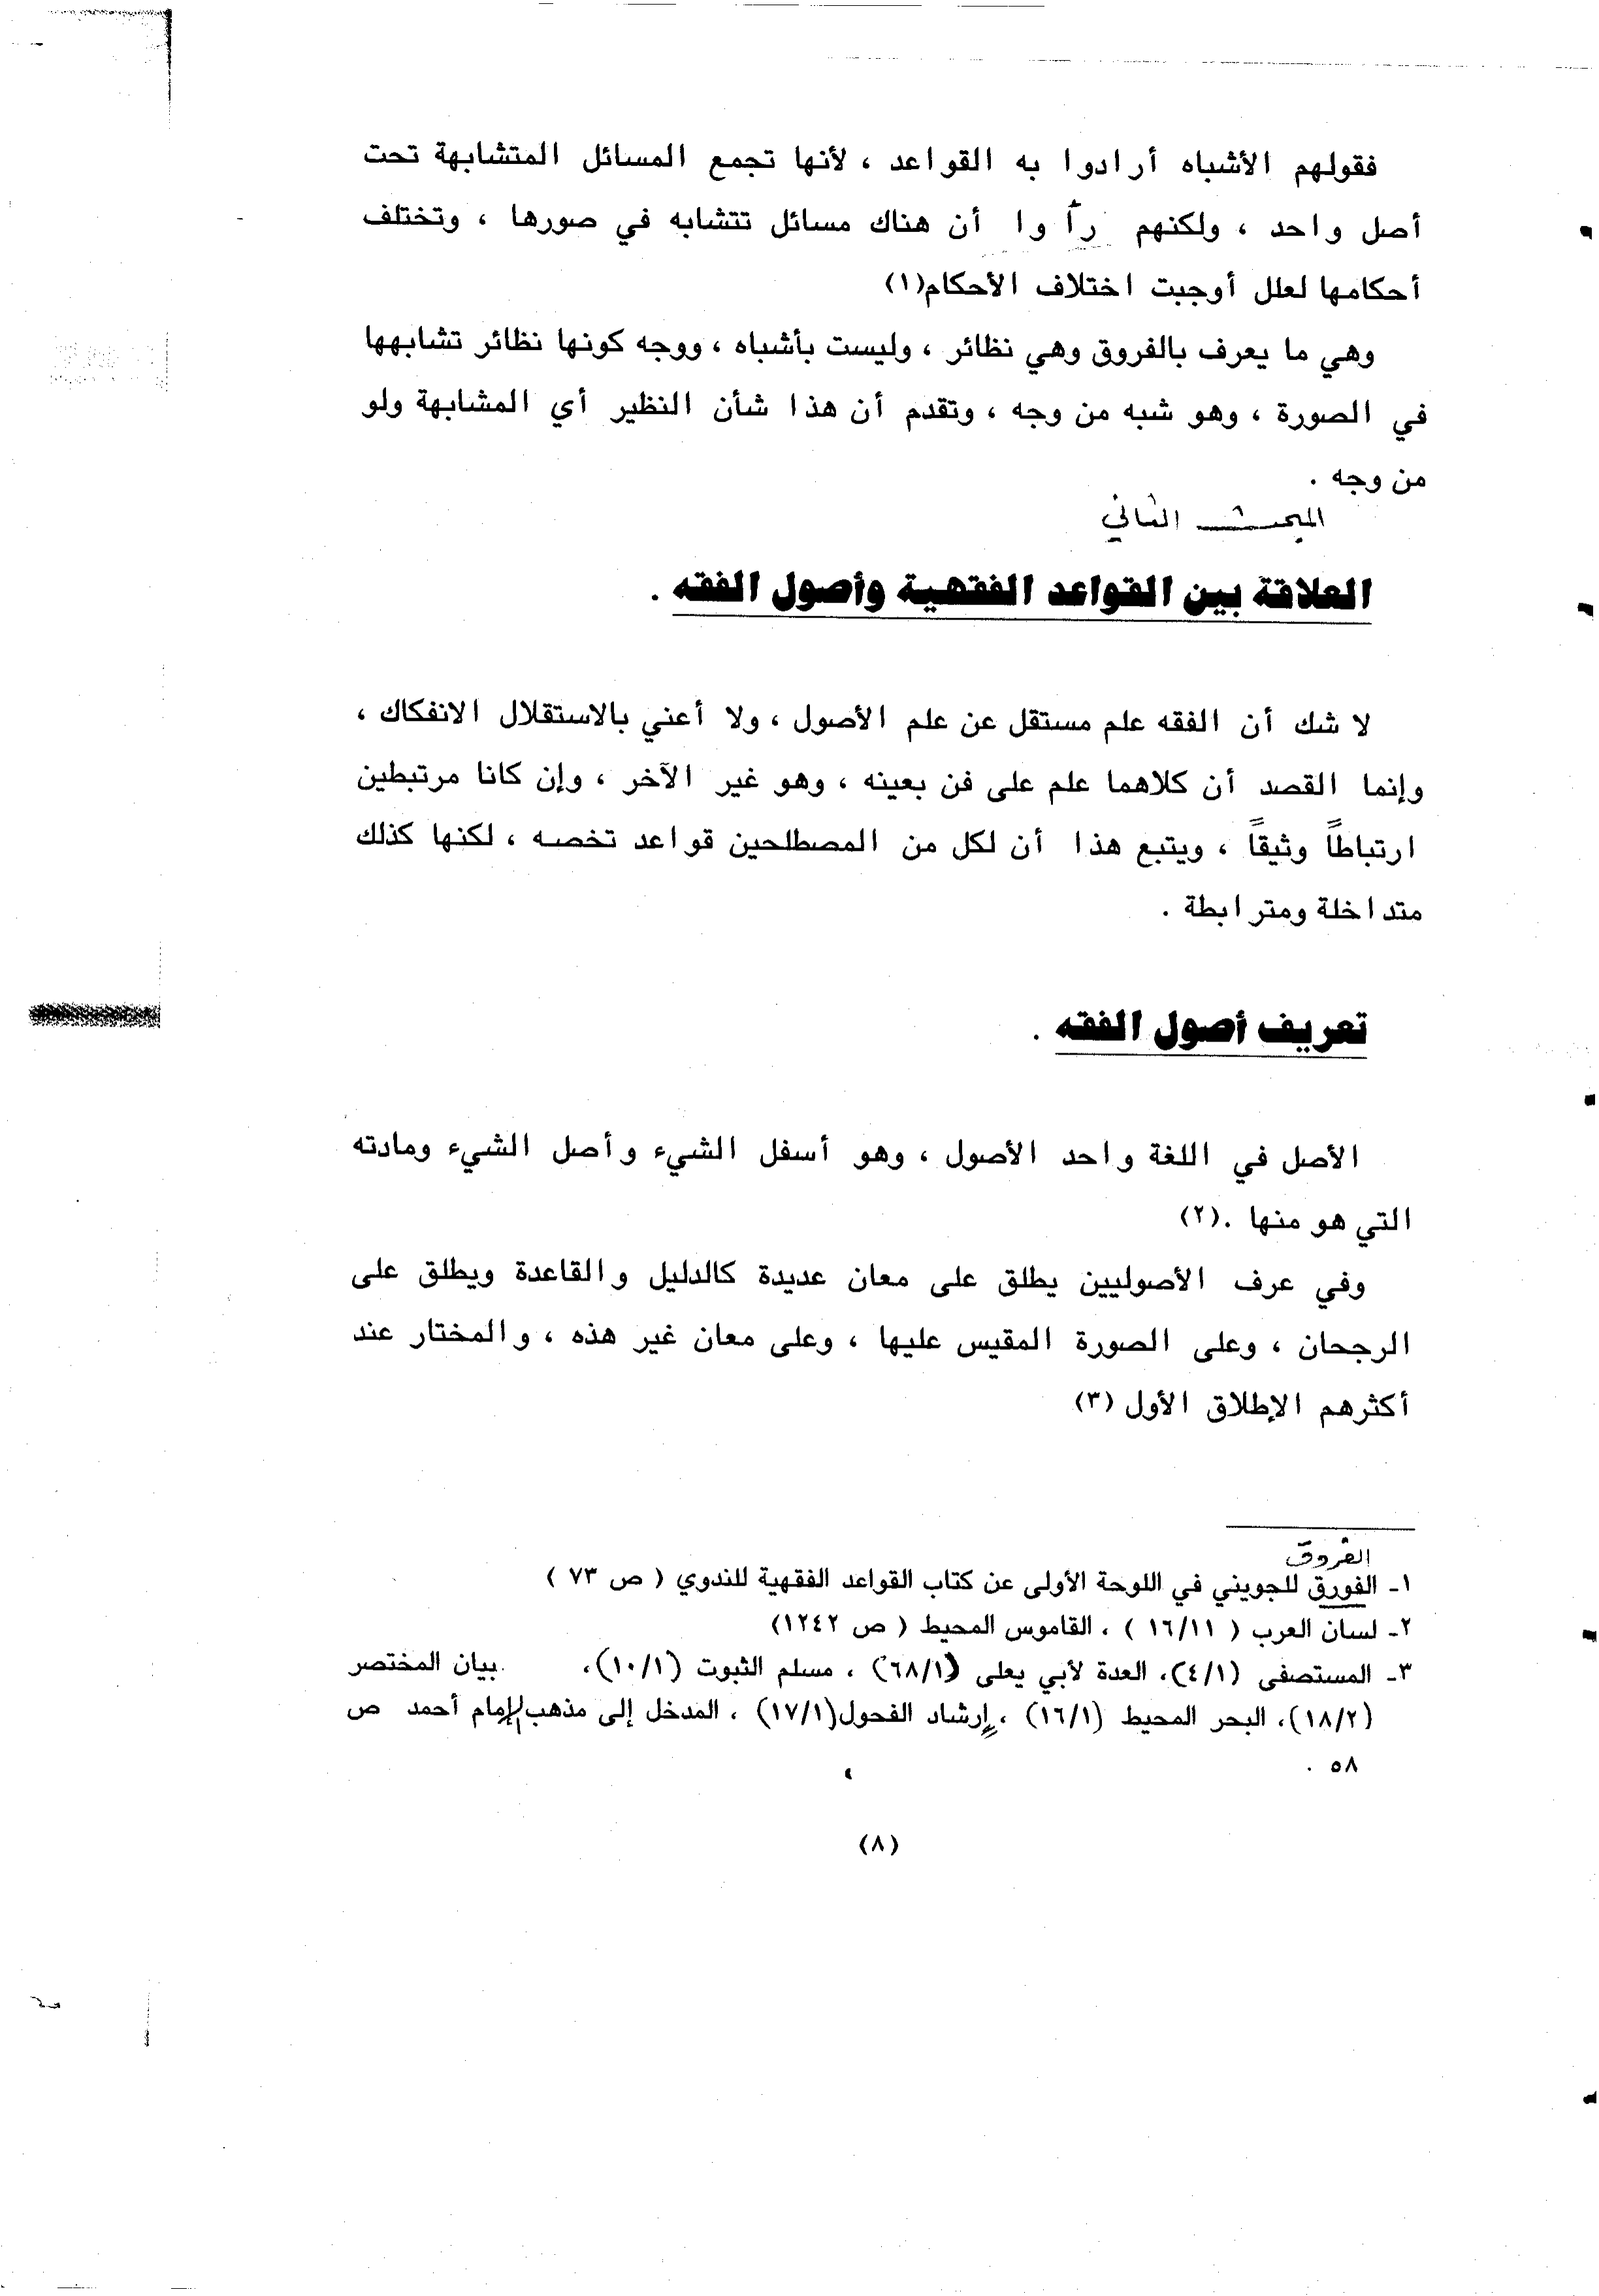 فقولهم الأشباه أرادوا به القواعد ، لأنها تجمع المسائل المتشابهة تحت
أصل واحد ، ولكنهم رأوا أن هناك مسائل تتشابه في صورها ، وتختلف
أحكامها لعلل أوجبت اختلاف الأحكام(١)
وهي ما يعرف بالفروق وهي نظائر ، وليست بأشباه ، ووجه كونها نظائر تشابهها
في الصورة ، وهو شبه من وجه ، وتقدم أن هذا شأن النظير أي المشابهة ولو
من وجه .
المبحث الثاني
العلاقة بين القواعد الفقهية وأصول الفقه .
لا شك أن الفقه علم مستقل عن علم الأصول ، ولا أعني بالاستقلال الانفكاك ،
وإنما القصد أن كلاهما علم على فن بعينه ، وهو غير الآخر ، وإن كانا مرتبطين
ارتباطاً وثيقاً ، ويتبع هذا أن لكل من المصطلحين قواعد تخصه ، لكنها كذلك
متداخلة ومترابطة .
تعريف أصول الفقه .
الأصل في اللغة واحد الأصول ، وهو أسفل الشيء وأصل الشيء ومادته
التي هو منها .(٢)
وفي عرف الأصوليين يطلق على معان عديدة كالدليل والقاعدة ويطلق على
الرجحان ، وعلى الصورة المقيس عليها ، وعلى معان غير هذه ، والمختار عند
أكثرهم الإطلاق الأول (٣)
الفروق
١- الفورق للجويني في اللوحة الأولى عن كتاب القواعد الفقهية للندوي ( ص ٧٣ )
٢- لسان العرب ( ١٦/١١ ) ، القاموس المحيط ( ص ١٢٤٢)
٣- المستصفى (٤/١)، العدة لأبي يعلى (٦٨/١) ، مسلم الثبوت (١٠/١)، بيان المختصر
(١٨/٢)، البحر المحيط (١٦/١) ، إرشاد الفحول(١٧/١) ، المدخل إلى مذهب الإمام أحمد ص
٥٨ .
(٨)